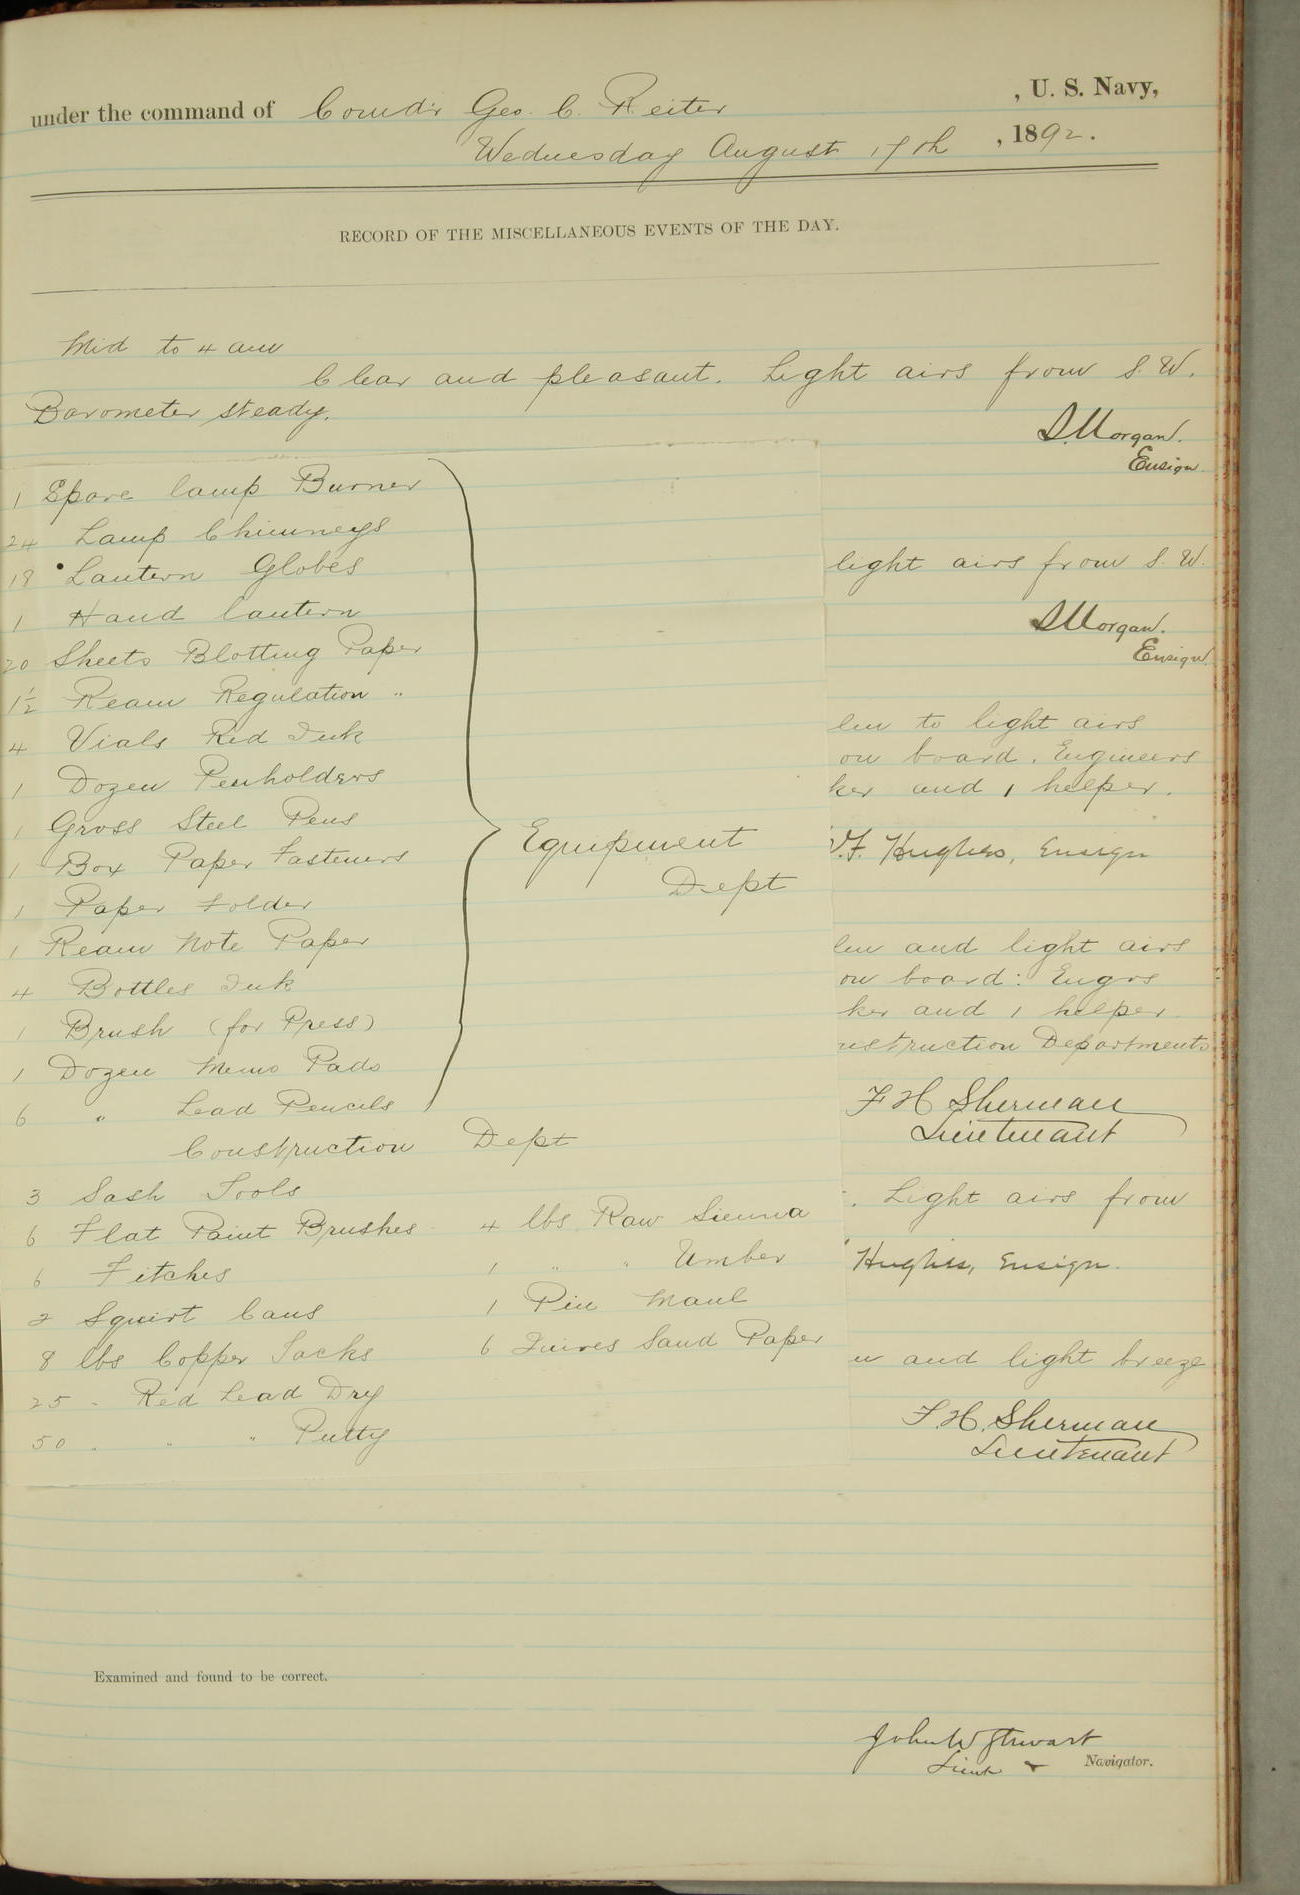 under the command of Comd'r Geo. C. Reiter , U. S. Navy,
Wednesday August 17th , 1892.
RECORD OF THE MISCELLANEOUS EVENTS OF THE DAY.
Mid to 4 am
Clear and pleasant. Light airs from S. W.
Barometer steady.
D. Morgan.
Ensign.
1 Spare lamp Burner
24 Lamp Chimneys
18 Lantern Globes
1 Hand lantern
20 Sheets Blotting Paper
1½ Ream Regulation "
4 Vials Red Ink
1 Dozen Penholders
1 Gross Steel Pens
1 Box Paper Fasteners
1 Paper Folder
1 Ream Note Paper
4 Bottles Ink
1 Brush (for Press)
1 Dozen Memo Pads
6 " Lead Pencils
Equipment
Dept
Construction Dept
3 Sash Tools
6 Flat Paint Brushes
6 Fitches
2 Squirt Cans
8 lbs Copper Tacks
25 " Red Lead Dry
50 " " " Putty
4 lbs Raw Sienna
1 " " Umber
1 Pin Maul
6 Quires Sand Paper
light airs from S. W.
D. Morgan.
Ensign.
lm to light airs
on board. Engineers
ker and 1 helper.
F. Hughes, Ensign
lm and light airs
on board: Engrs
ker and 1 helper
nstruction Departments
F H Sherman
Lieutenant
. Light airs from
Hughes, Ensign.
and light breeze
F. H. Sherman
Lieutenant
Examined and found to be correct.
John W Stewart
Lieut & Navigator.